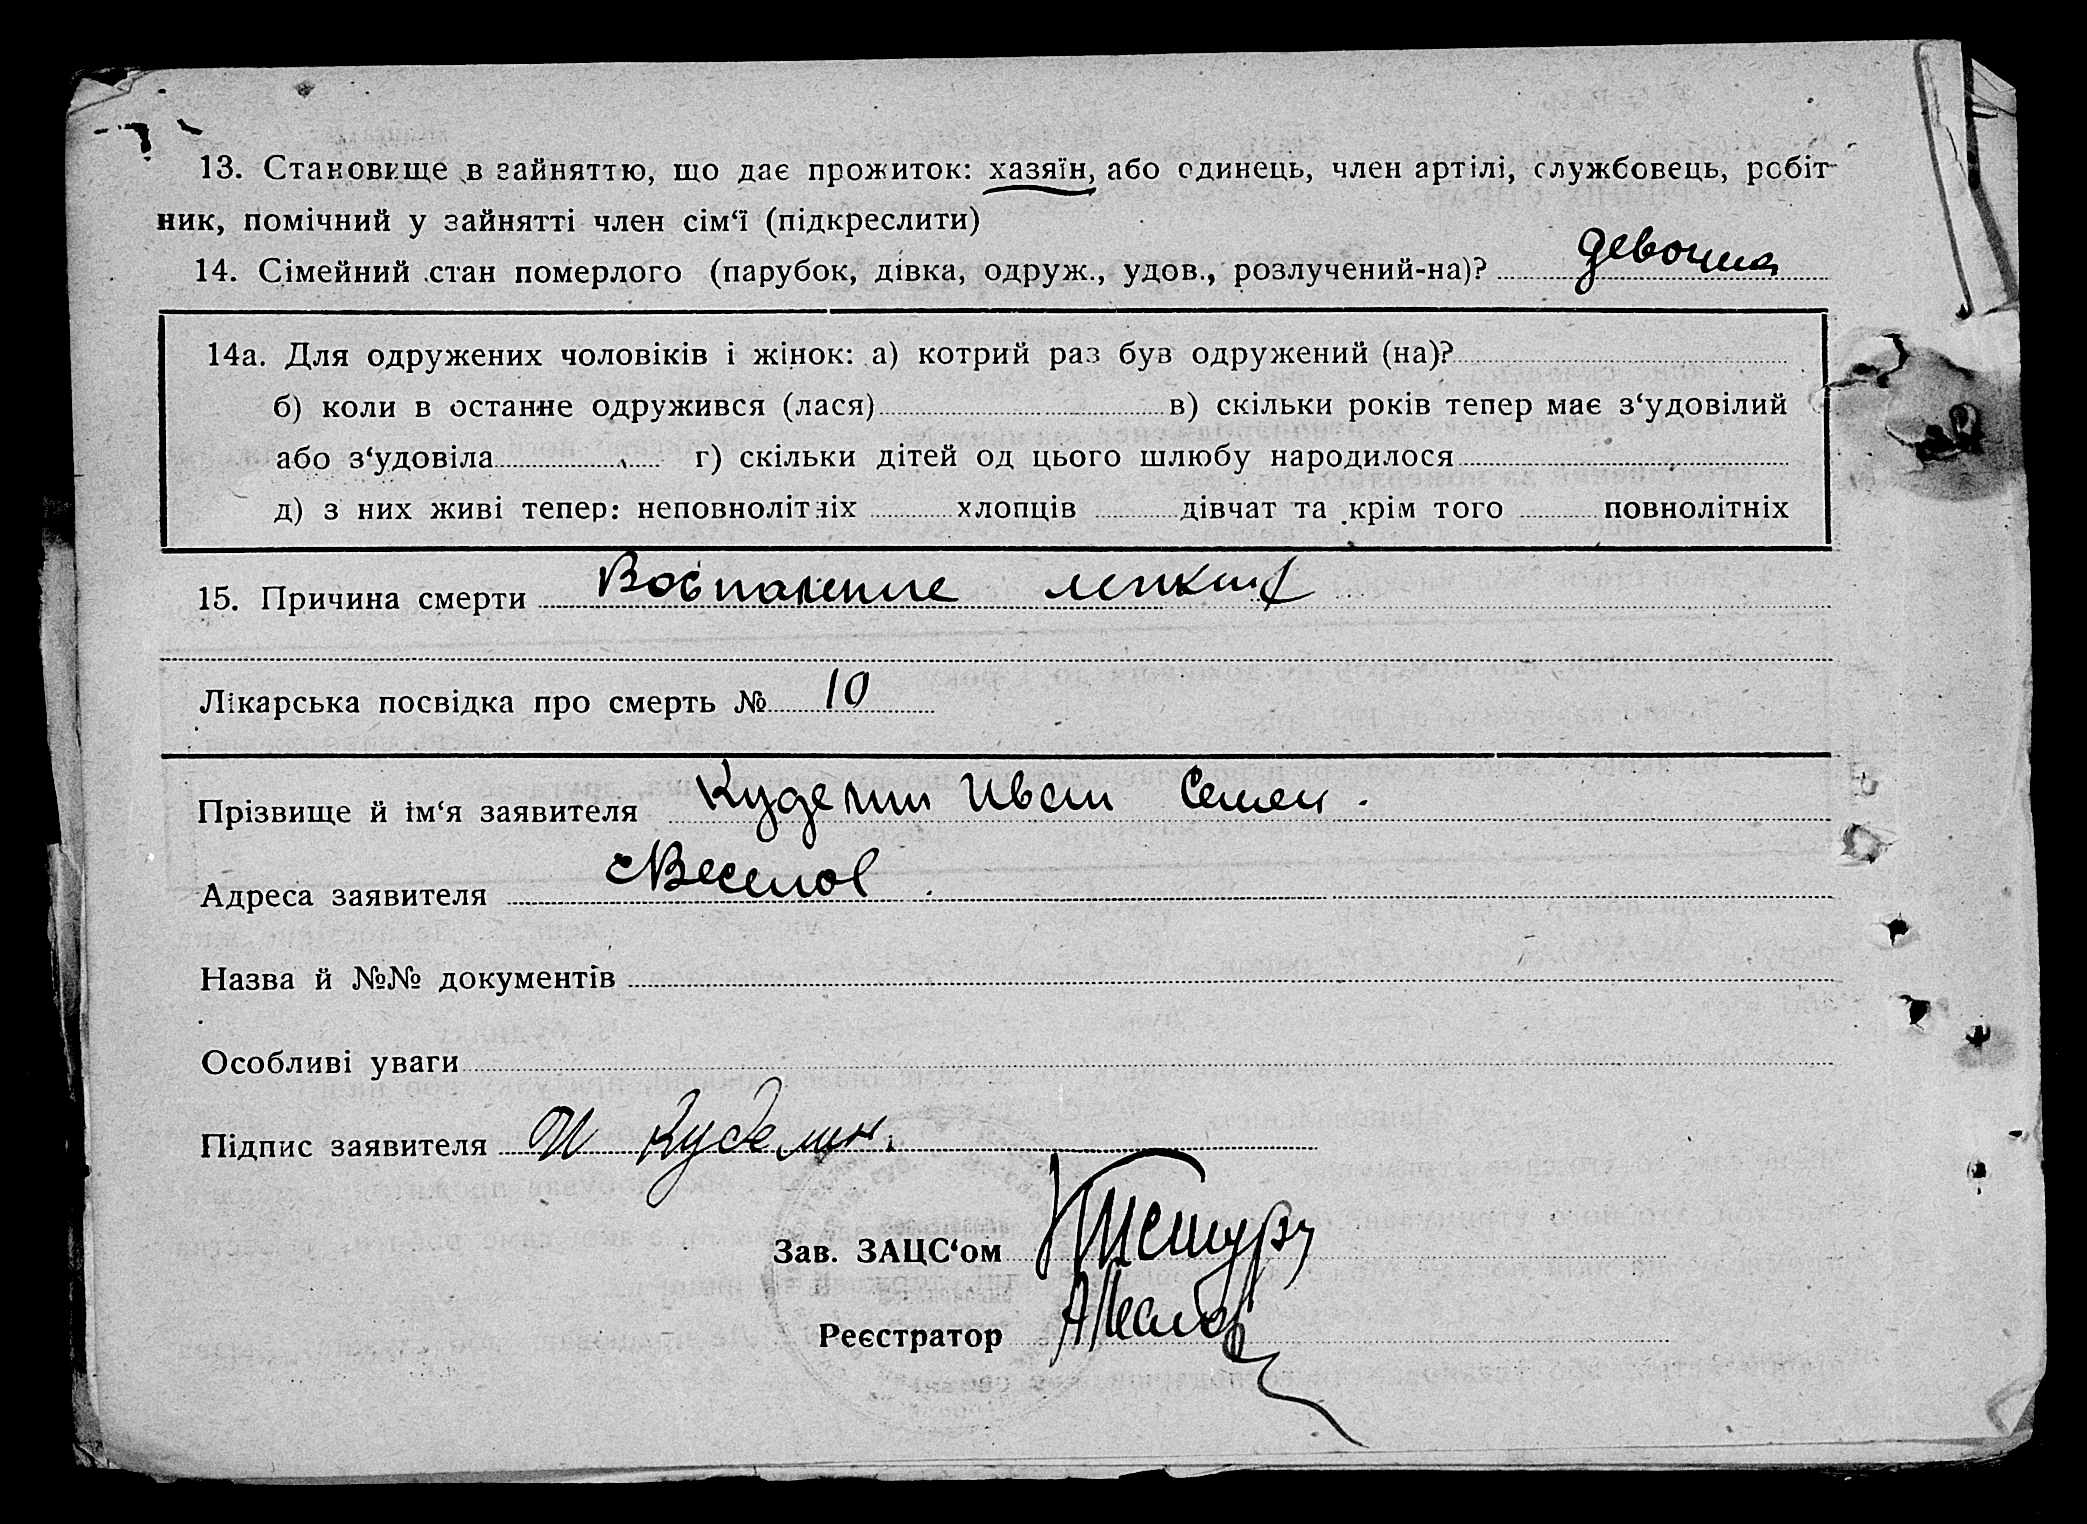 13. Становище в зайняттю, що дає прожиток: хазяїн, або одинець, член артілі, службовець, робіт-
ник, помічний у зайнятті член сім‘ї (підкреслити)
14. Сімейний стан померлого (парубок, дівка, одруж., удов., розлучений-на)? девочка
14а. Для одружених чоловіків і жінок: а) котрий раз був одружений (на)?
б) коли в останнє одружився (лася) в) скільки років тепер має з‘удовілий
або з‘удовіла г) скільки дітей од цього шлюбу народилося
д) з них живі тепер: неповнолітніх хлопців дівчат та крім того повнолітніх
15. Причина смерти Воспаление легких
Лікарська посвідка про смерть № 10
Прізвище й ім‘я заявителя Куделин Иван Семен.
Адреса заявителя
Назва й №№ документів
Особливі уваги
Підпис заявителя И Куделин.
Зав. ЗАЦС‘ом
Реєстратор